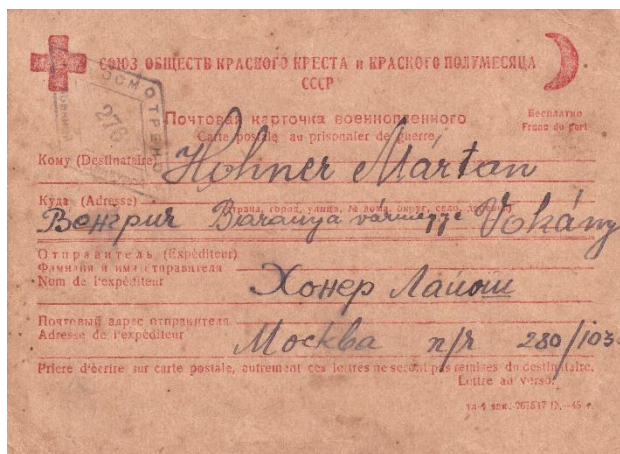 СОЮЗ ОБЩЕСТВ КРАСНОГО КРЕСТА и КРАСНОГО ПОЛУМЕСЯЦА
СССР
ОСМОТРЕНО
276
Почтовая карточка военнопленного
Carte postale au prisonnier de guerre
Бесплатно
Franc de port
Кому (Destinataire) Hohner Mártan
Куда (Adresse)
(страна, город, улица, № дома, округ, село, деревня)
Венгрия Baranya vármegye Vokány
Отправитель (Expéditeur)
Фамилия и имя отправителя
Nom de l'expéditeur
Хонер Лайош
Почтовый адрес отправителя
Adresse de l'expéditeur
Москва п/я 280/103
Prière d'écrire sur carte postale, autrement ces lettres ne seront pas remises au destinataire.
Lettre au verso.